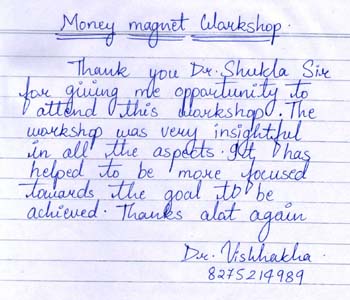 Money magnet Workshop.
Thank you Dr. Shukla Sir
for giving me opportunity to
attend this workshop. The
workshop was very insightful
in all the aspects. It has
helped to be more focused
towards the goal to be
achieved. Thanks alot again
Dr. Vishhakha.
8275214989